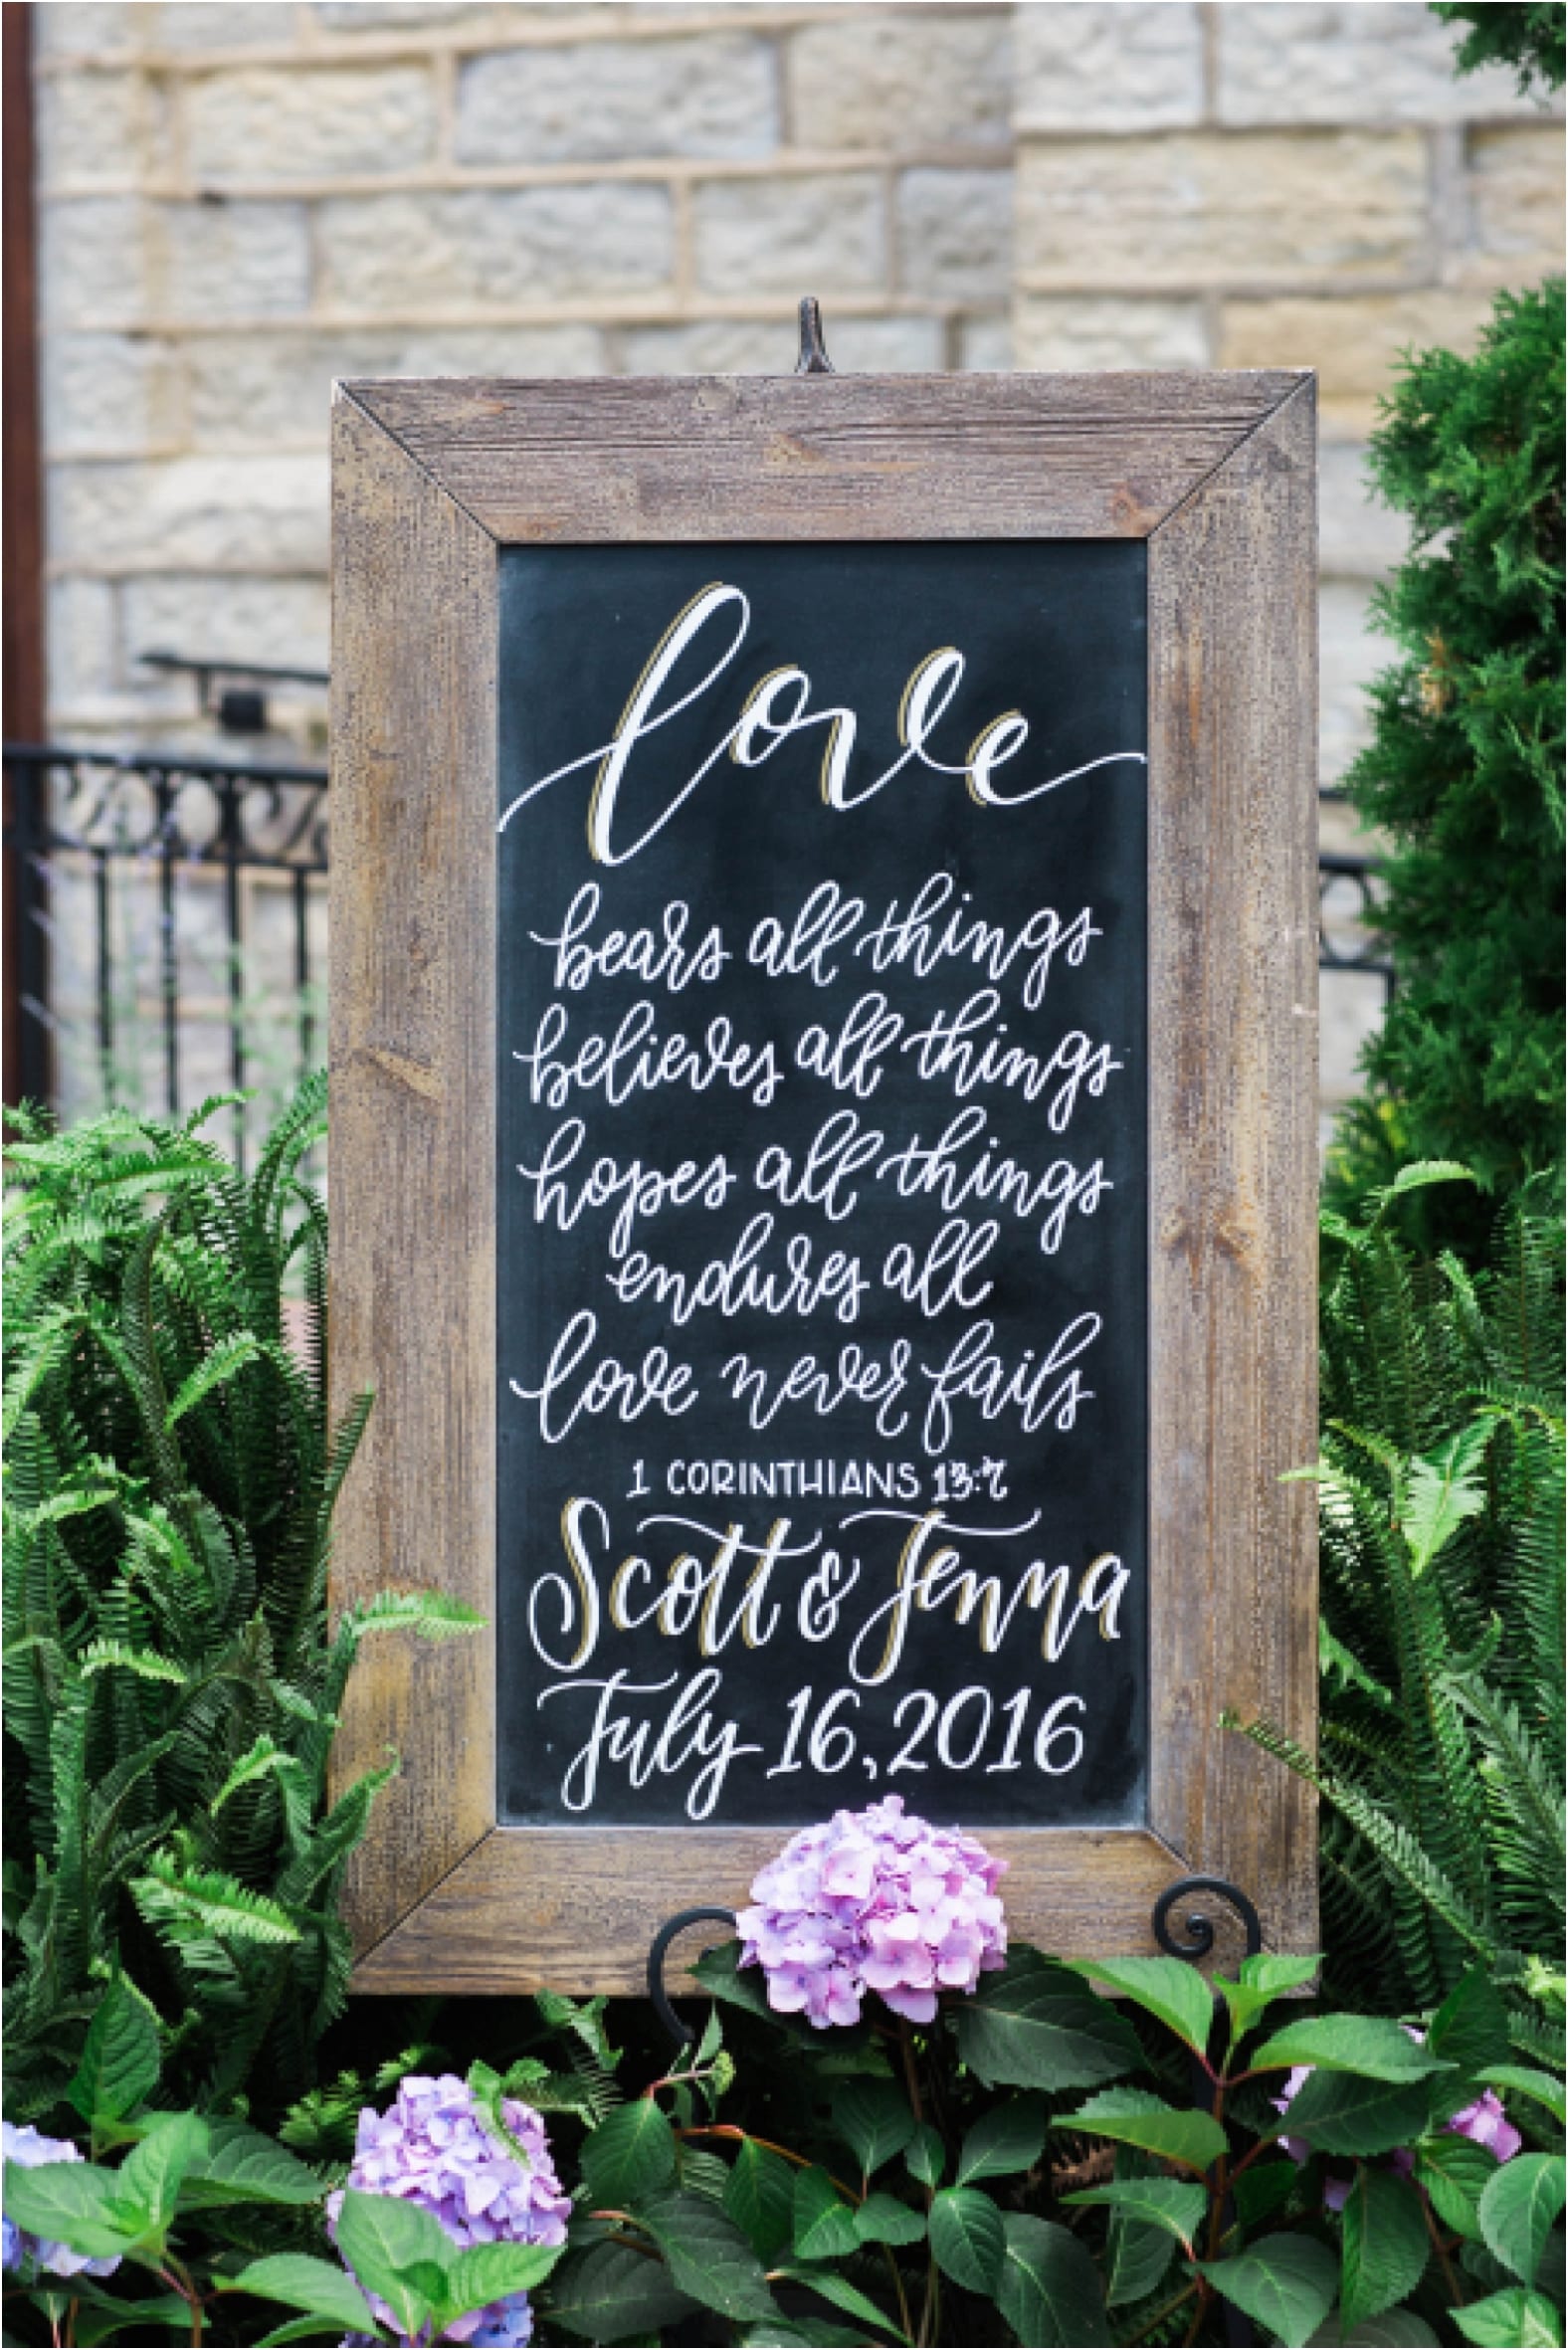 love
bears all things
believes all things
hopes all things
endures all
love never fails
1 CORINTHIANS 13:7
Scott & Jenna
July 16, 2016